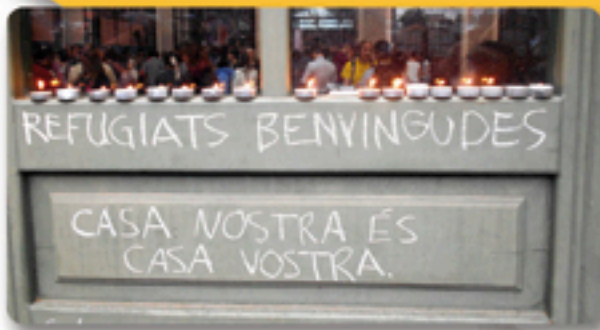 REFUGIATS BENVINGUDES
CASA NOSTRA ÉS
CASA VOSTRA.